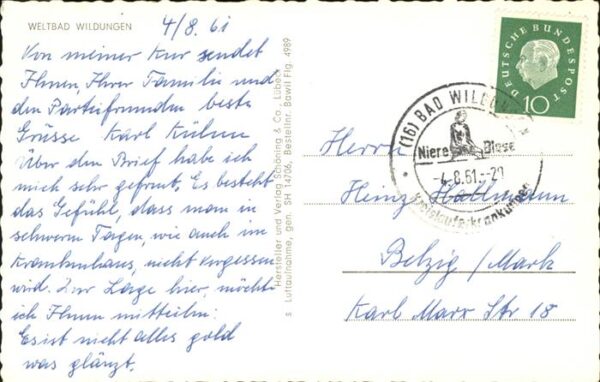 WELTBAD WILDUNGEN
4/8. 61
Von meiner Kur sendet
Ihnen, Ihrer Familie und
den Parteifreunden beste
Grüsse Karl Kühne
Über den Brief habe ich
mich sehr gefreut, Es besteht
das Gefühl, dass man in
schweren Tagen, wie auch im
Krankenhaus, nicht vergessen
wird. Zur Lage hier, möcht
ich Ihnen mitteiln:
Es ist nicht alles gold
was glänzt.
Hersteller und Verlag Schöning & Co., Lübeck
s Luftaufnahme, gen. SH 14706, Bestellnr. Bawil Flg. 4989
DEUTSCHE BUNDESPOST
10
(16) BAD WILDUN
Niere Blase
-4.8.61.-20
Kreislauferkrankungen
Herrn
Heinz
Belzig / Mark
Karl Marx Str 18